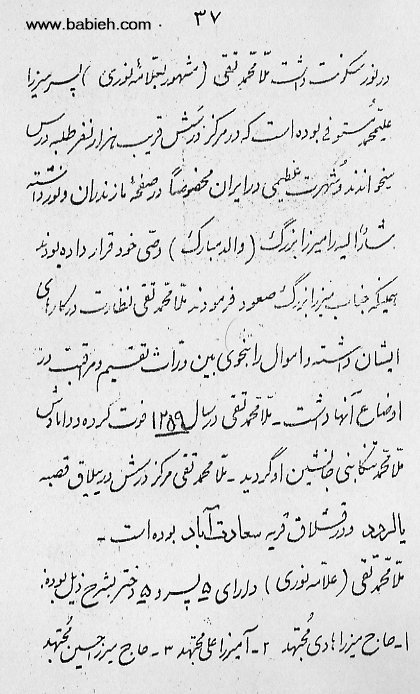 ۳۷
www.babieh.com
در نور سکونت داشت ملا محمد تقی (مشهور بعلامه نوری) پسر میرزا
علیمحمد مستوفی بوده است که در مرکز درسش قریب هزار نفر طلبه درس
میخواندند و شهرت عظیمی در ایران مخصوصاً در صفحهٔ مازندران و نور داشته
مشارٌالیه را میرزا بزرگ (والد مبارک) وصی خود قرار داده بودند
همینکه جناب میرزا بزرگ صعود فرمودند ملا محمد تقی نظارت در کارهای
ایشان داشته و اموال را بنحوی بین وراث تقسیم و مراقبت در
اوضاع آنها داشت - ملا محمد تقی در سال ۱۲۵۹ فوت کرده و دامادش
ملا محمد تنکابنی جانشین او گردید - ملا محمد تقی مرکز درسش در ییلاق قصبه
یالرود و در قشلاق قریه سعادت آباد بوده است -
ملا محمد تقی (علامه نوری) دارای ۵ پسر و ۵ دختر بشرح ذیل بوده:
۱- حاج میرزا هادی مجتهد ۲- آمیرزا علی مجتهد ۳- حاج میرزا حسین مجتهد